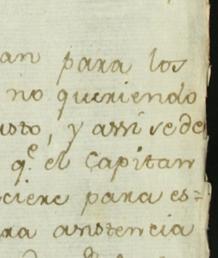 an para los
no queriendo
usto, y assi se de
q.e el Capitan
ciere para es=
ra asistencia